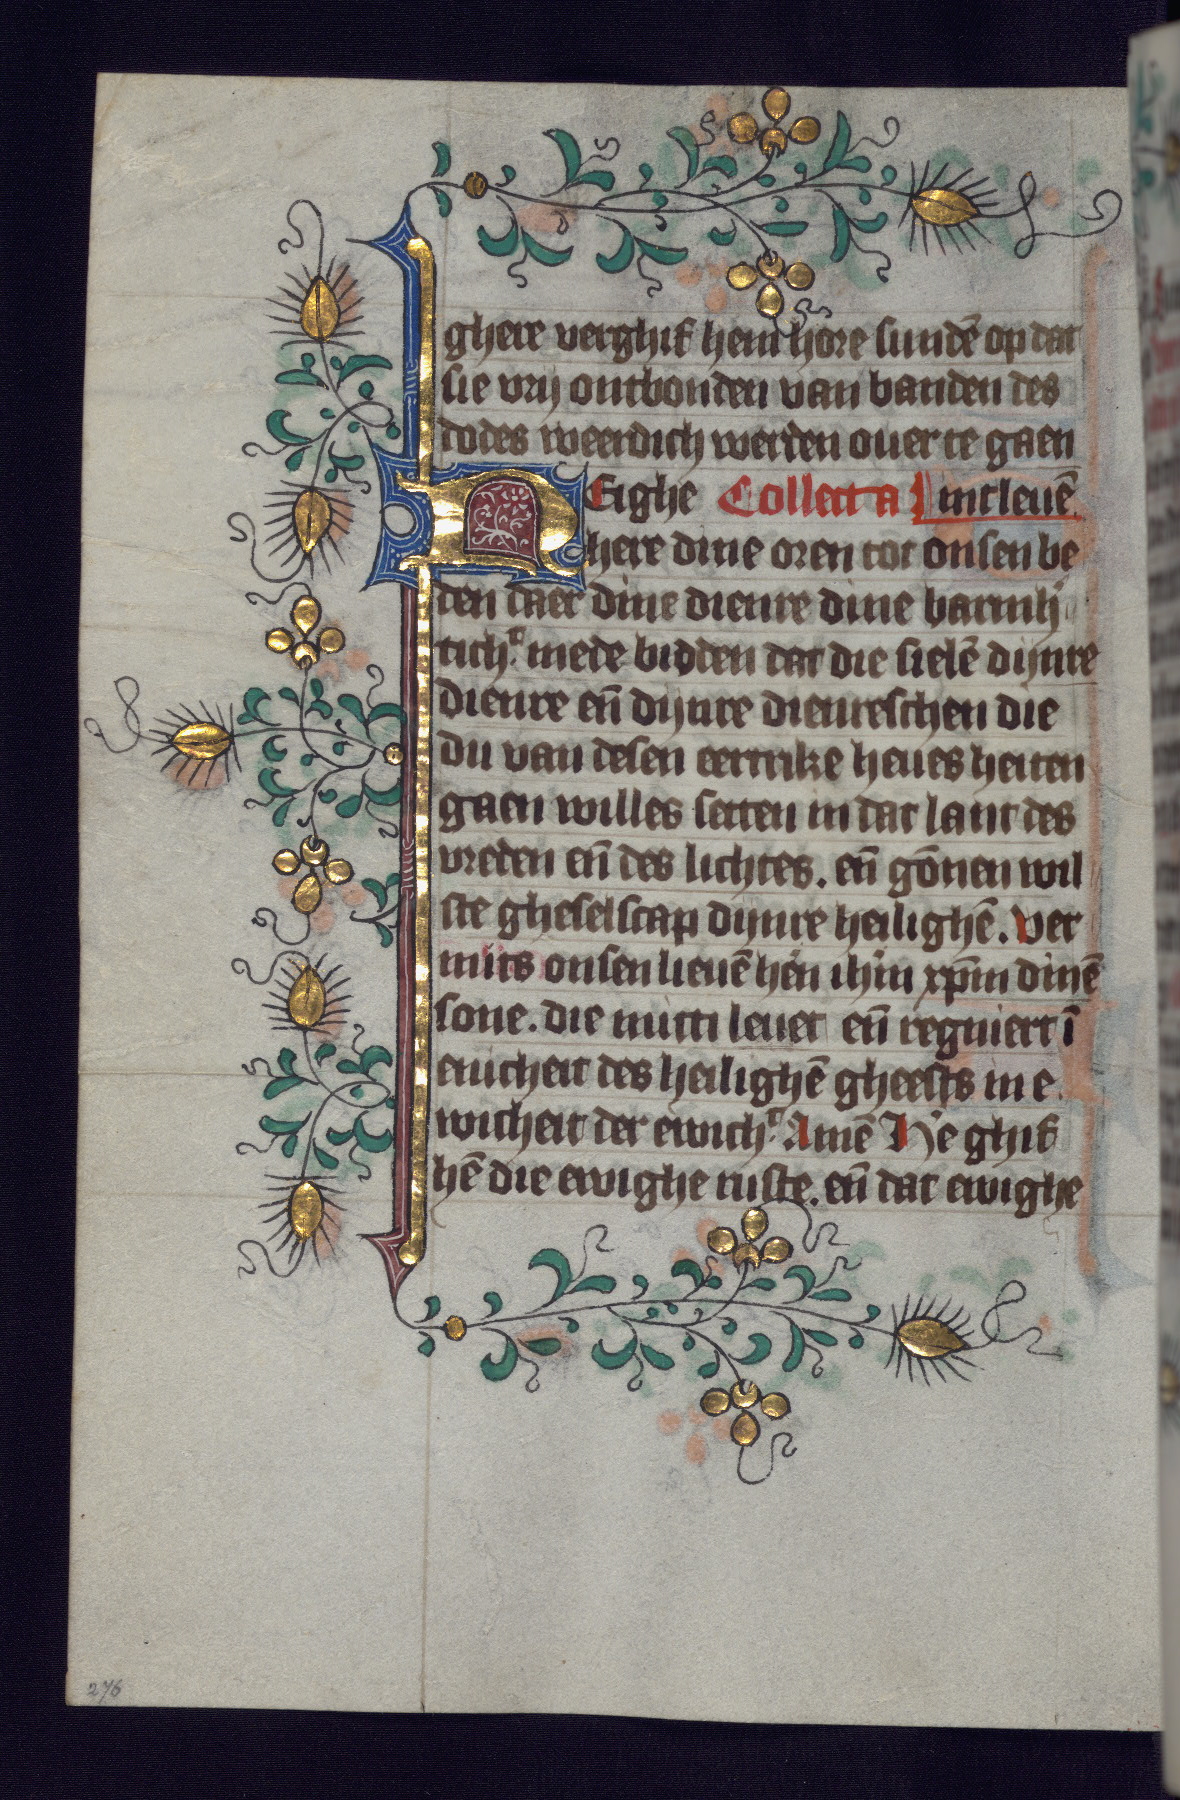 ghere verghif hem hore sundē op dat
sie vrij ontbonden van banden des
dodes weerdich werden ouer te gaen
NEighe Collecta
here dine oren tot onsen be
den daer dine dienre dine barmh
tich.ᵗ mede bidden dat die sielē dijnre
dienre eñ dijnre dienreschen die
du van desen eertrike heues heiten
gaen willes setten in dat lant des
vreden eñ des lichtes. eñ gōnen wil
ste gheselscap dijnre heilighē. Ver
mits onsen lieuē hēn ihm xp̄m dinē
sone. die mitti leuet eñ regniert ī
enicheit des heilighē gheests in e
wicheit der ewich.ᵗ Amē He ghif
hē die ewighe ruste. eñ dat ewighe
276